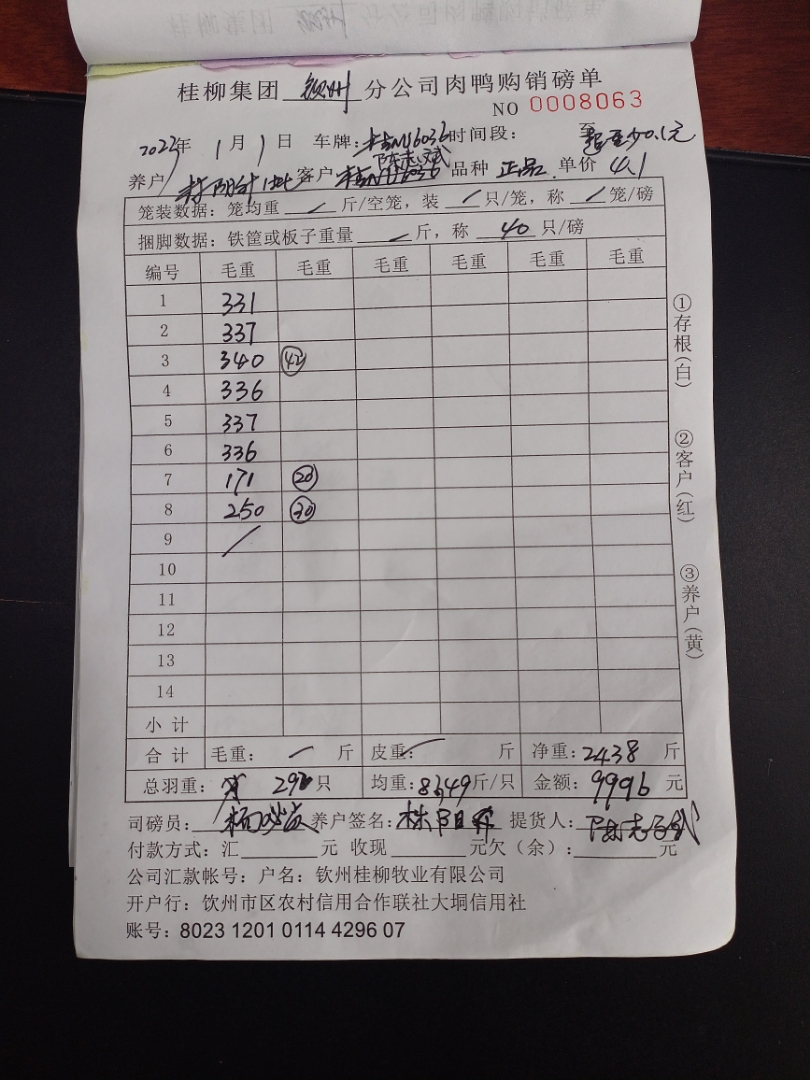 桂柳集团 钦州 分公司肉鸭购销磅单
NO 0008063
2022年 1月 1日 车牌: 时间段: 至
陈志斌
养户 客户 品种 正品 单价 4.1
笼装数据: 笼均重 / 斤/空笼, 装 / 只/笼, 称 / 笼/磅
捆脚数据: 铁筐或板子重量 / 斤, 称 40 只/磅
编号 毛重 毛重 毛重 毛重 毛重 毛重
1 331
2 337
3 340 42
4 336
5 337
6 336
7 171 20
8 250 30
9 /
10
11
12
13
14
小 计
合 计 毛重: / 斤 皮重: / 斤 净重: 2438 斤
总羽重: 292 只 均重: 8.349 斤/只 金额: 9996 元
司磅员: 养户签名: 提货人:
付款方式: 汇 元 收现 元欠(余): 元
公司汇款帐号: 户名: 钦州桂柳牧业有限公司
开户行: 钦州市区农村信用合作联社大垌信用社
账号: 8023 1201 0114 4296 07
①存根(白)
②客户(红)
③养户(黄)